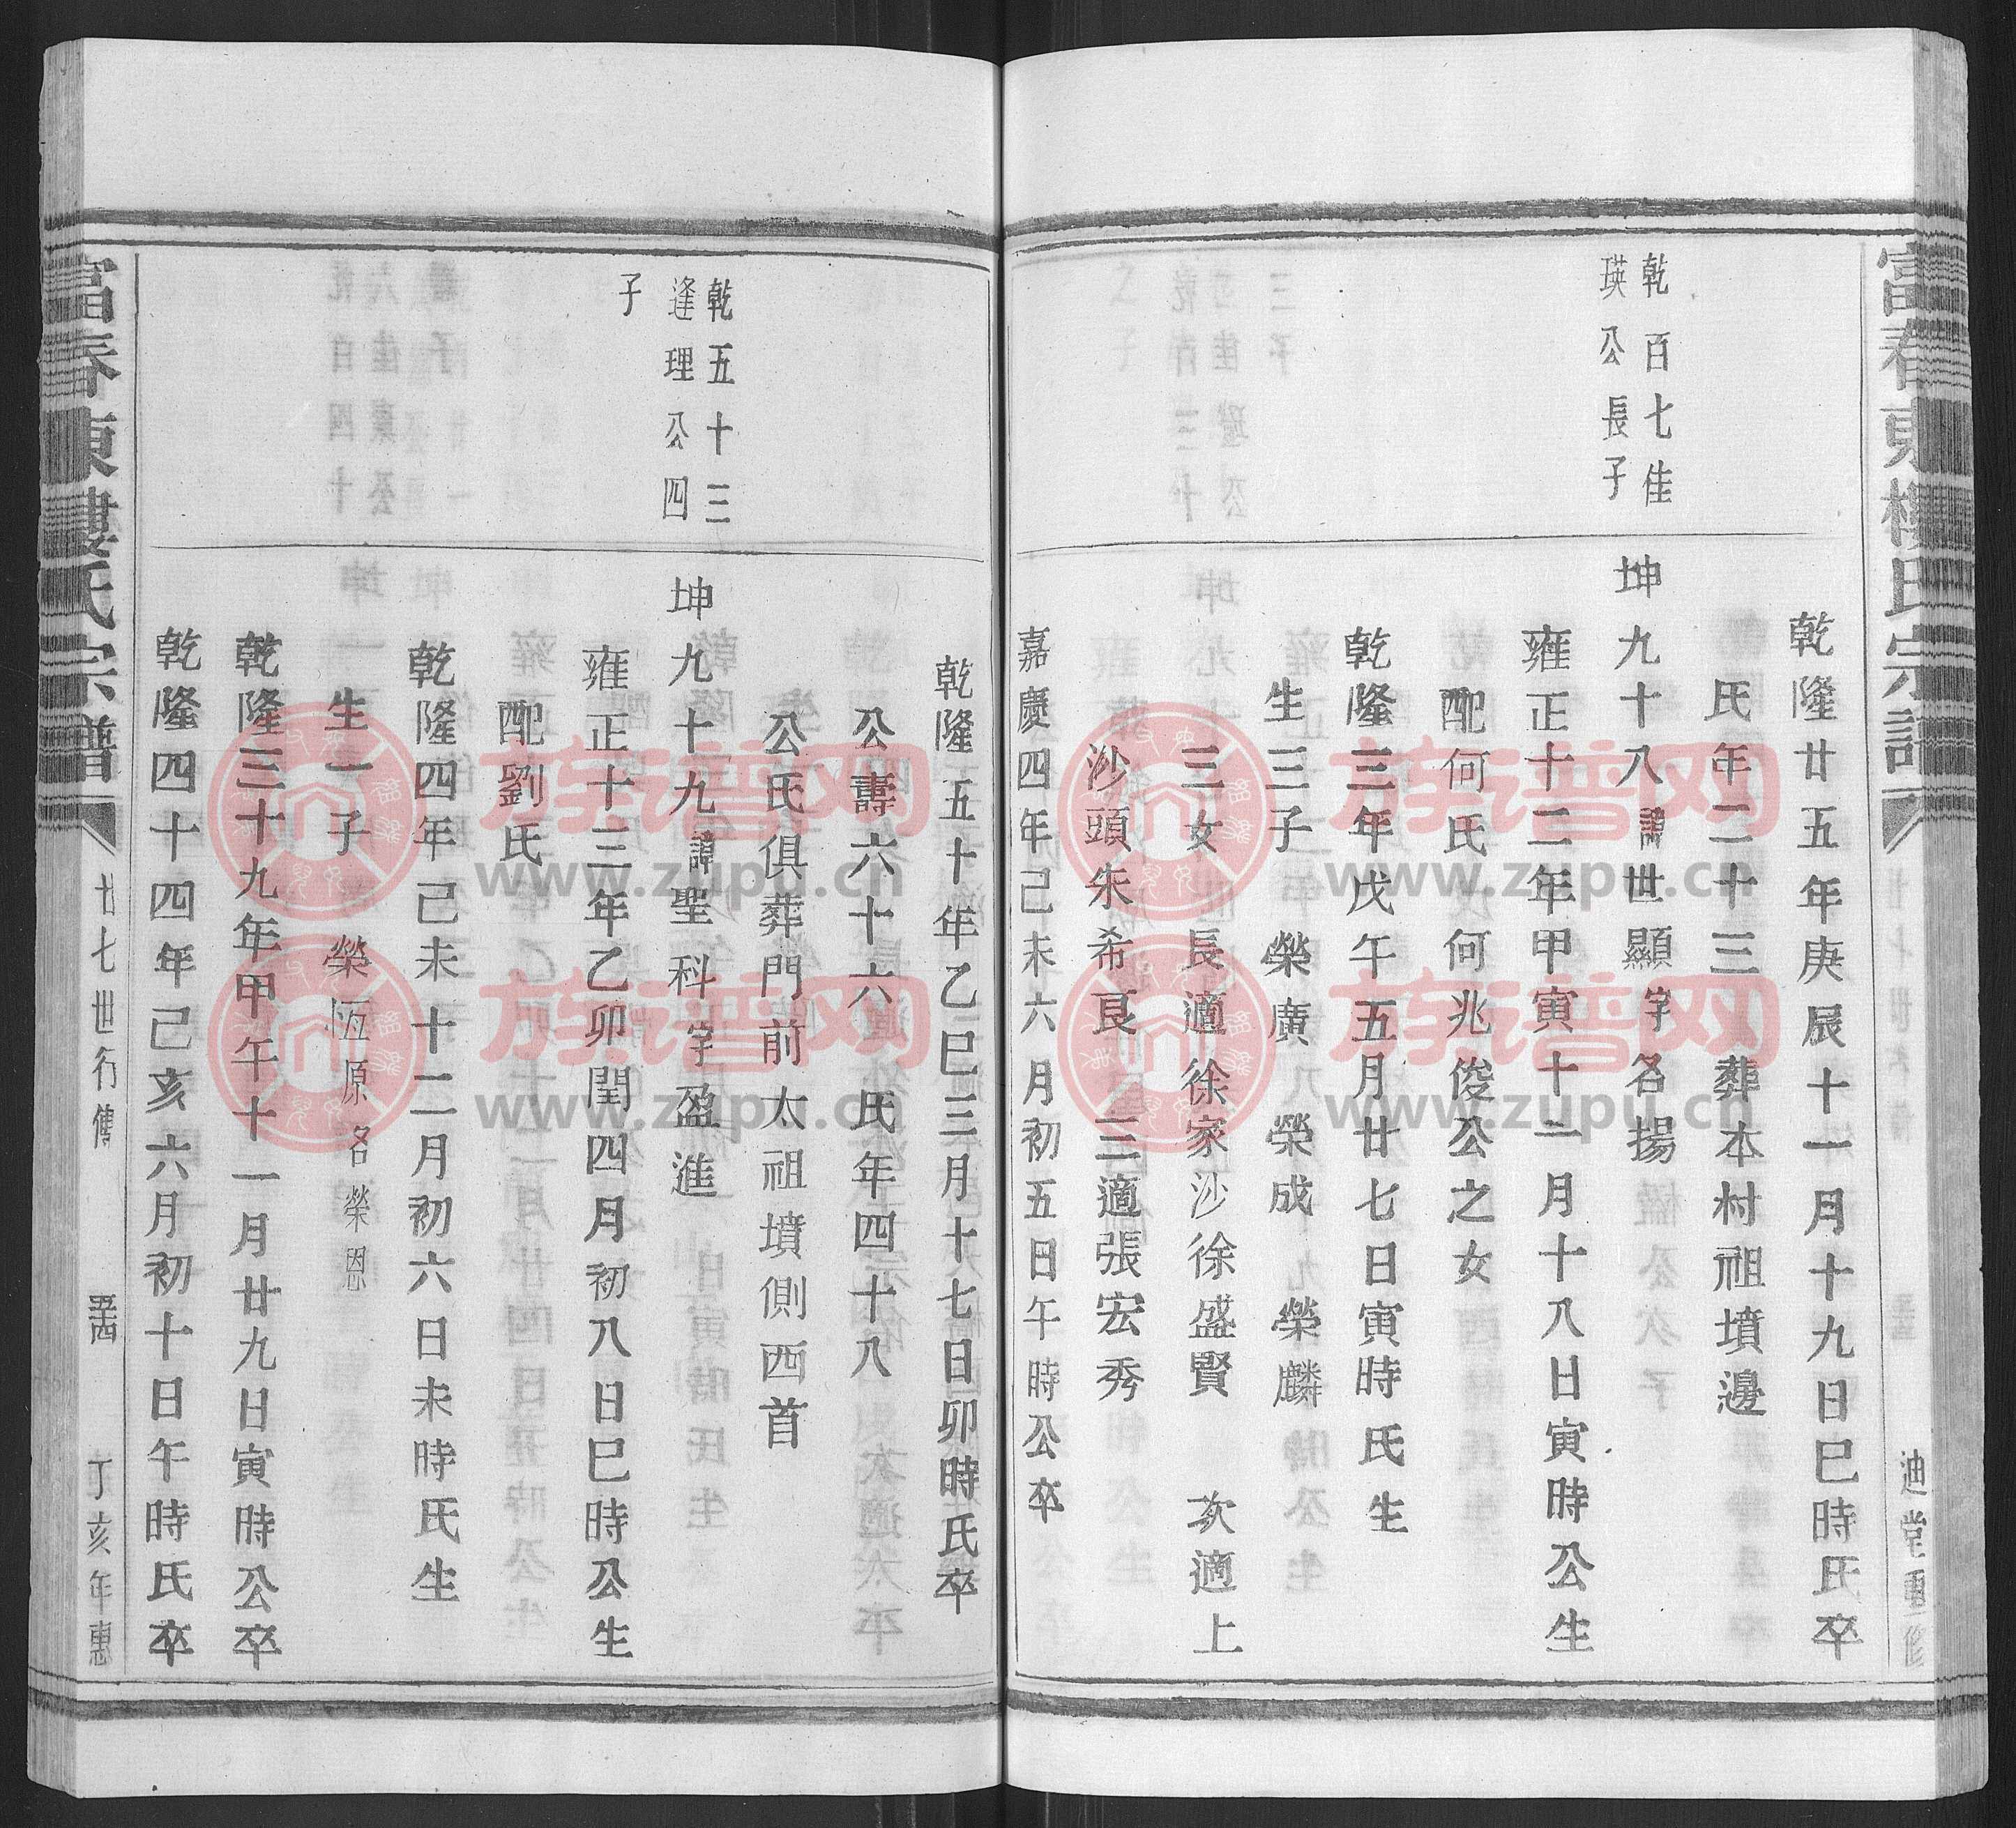 乾隆廿五年庚辰十一月十九日巳時氏卒
氏年二十三 葬本村祖墳邊
乾百七佳
瑛公長子
坤九十八諱世顯字名揚
雍正十二年甲寅十一月十八日寅時公生
配何氏 何兆俊公之女
乾隆三年戊午五月廿七日寅時氏生
生三子 榮廣 榮成 榮麟
三女 長適徐家沙徐盛賢 次適上
沙頭朱希良 三適張宏秀
嘉慶四年己未六月初五日午時公卒
乾隆五十年乙巳三月十七日卯時氏卒
公壽六十六 氏年四十八
公氏俱葬門前太祖墳側西首
乾五十三
逢理公四
子
坤九十九諱聖科字盈進
雍正十三年乙卯閏四月初八日巳時公生
配劉氏
乾隆四年己未十二月初六日未時氏生
生一子 榮恆原名榮恩
乾隆三十九年甲午十一月廿九日寅時公卒
乾隆四十四年己亥六月初十日午時氏卒
富春東樓氏宗譜
廿七世行傳
丁亥年惠
富春東樓氏宗譜
迪堂重修
族谱网
www.zupu.cn
族谱网
www.zupu.cn
族谱网
www.zupu.cn
族谱网
www.zupu.cn